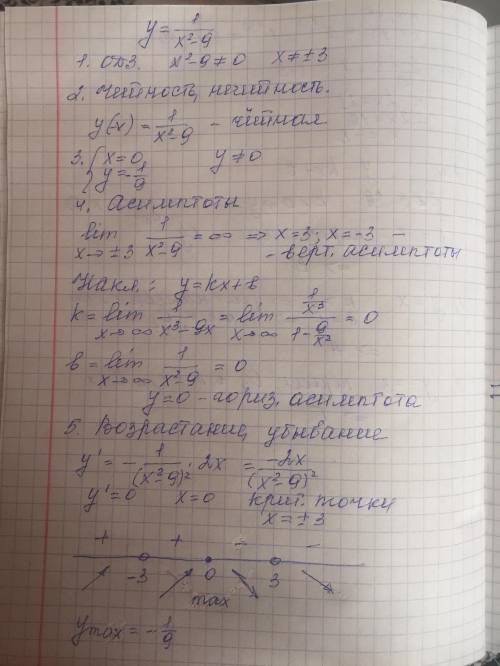 y = 1/(x²-9)
1. ОДЗ. x²-9≠0 x≠±3
2. Четность, нечетность.
y(-x) = 1/(x²-9) - чётная
3. { x=0, y=-1/9 y≠0
4. Асимптоты
lim x→±3 1/(x²-9) = ∞ => x=3; x=-3 -
- верт. асимптоты
Накл.: y=kx+b
k = lim x→∞ 1/(x³-9x) = lim x→∞ (1/x³)/(1-9/x²) = 0
b = lim x→∞ 1/(x²-9) = 0
y=0 - гориз. асимптота
5. Возрастание, убывание
y' = -1/(x²-9)² · 2x = -2x/(x²-9)²
y'=0 x=0 крит. точки
x=±3
+ + - -
-3 0 3
max
y max = -1/9
11